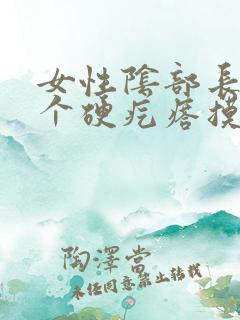 女性陰部長
个硬疙瘩摸
陶澤當
未经同意禁止转载